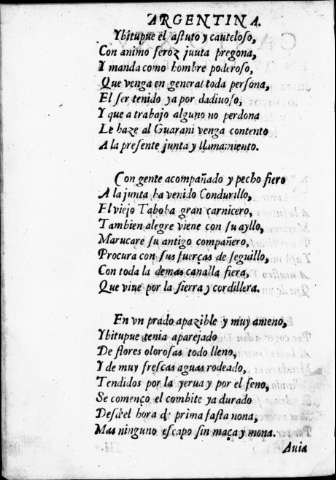 ARGENTINA.
Ybitupue el astuto y cauteloso,
Con animo feroz junta pregona,
Y manda como hombre poderoso,
Que venga en general toda persona,
El ser tenido ya por dadiuoso,
Y que a trabajo alguno no perdona
Le haze al Guarani venga contento
A la presente junta y llamamiento.
Con gente acompañado y pecho fiero
A la junta ha venido Condurillo,
El viejo Taboba gran carnicero,
Tambien alegre viene con su ayllo,
Marucare su antigo compañero,
Procura con sus fuerças de seguillo,
Con toda la demas canalla fiera,
Que viue por la sierra y cordillera.
En vn prado apazible y muy ameno,
Ybitupue tenia aparejado
De flores olorosas todo lleno,
Y de muy frescas aguas rodeado,
Tendidos por la yerua y por el feno,
Se començo el combite ya durado
Desdel hora de prima fasta nona,
Mas ninguno escapo sin maça y mona.
Auia